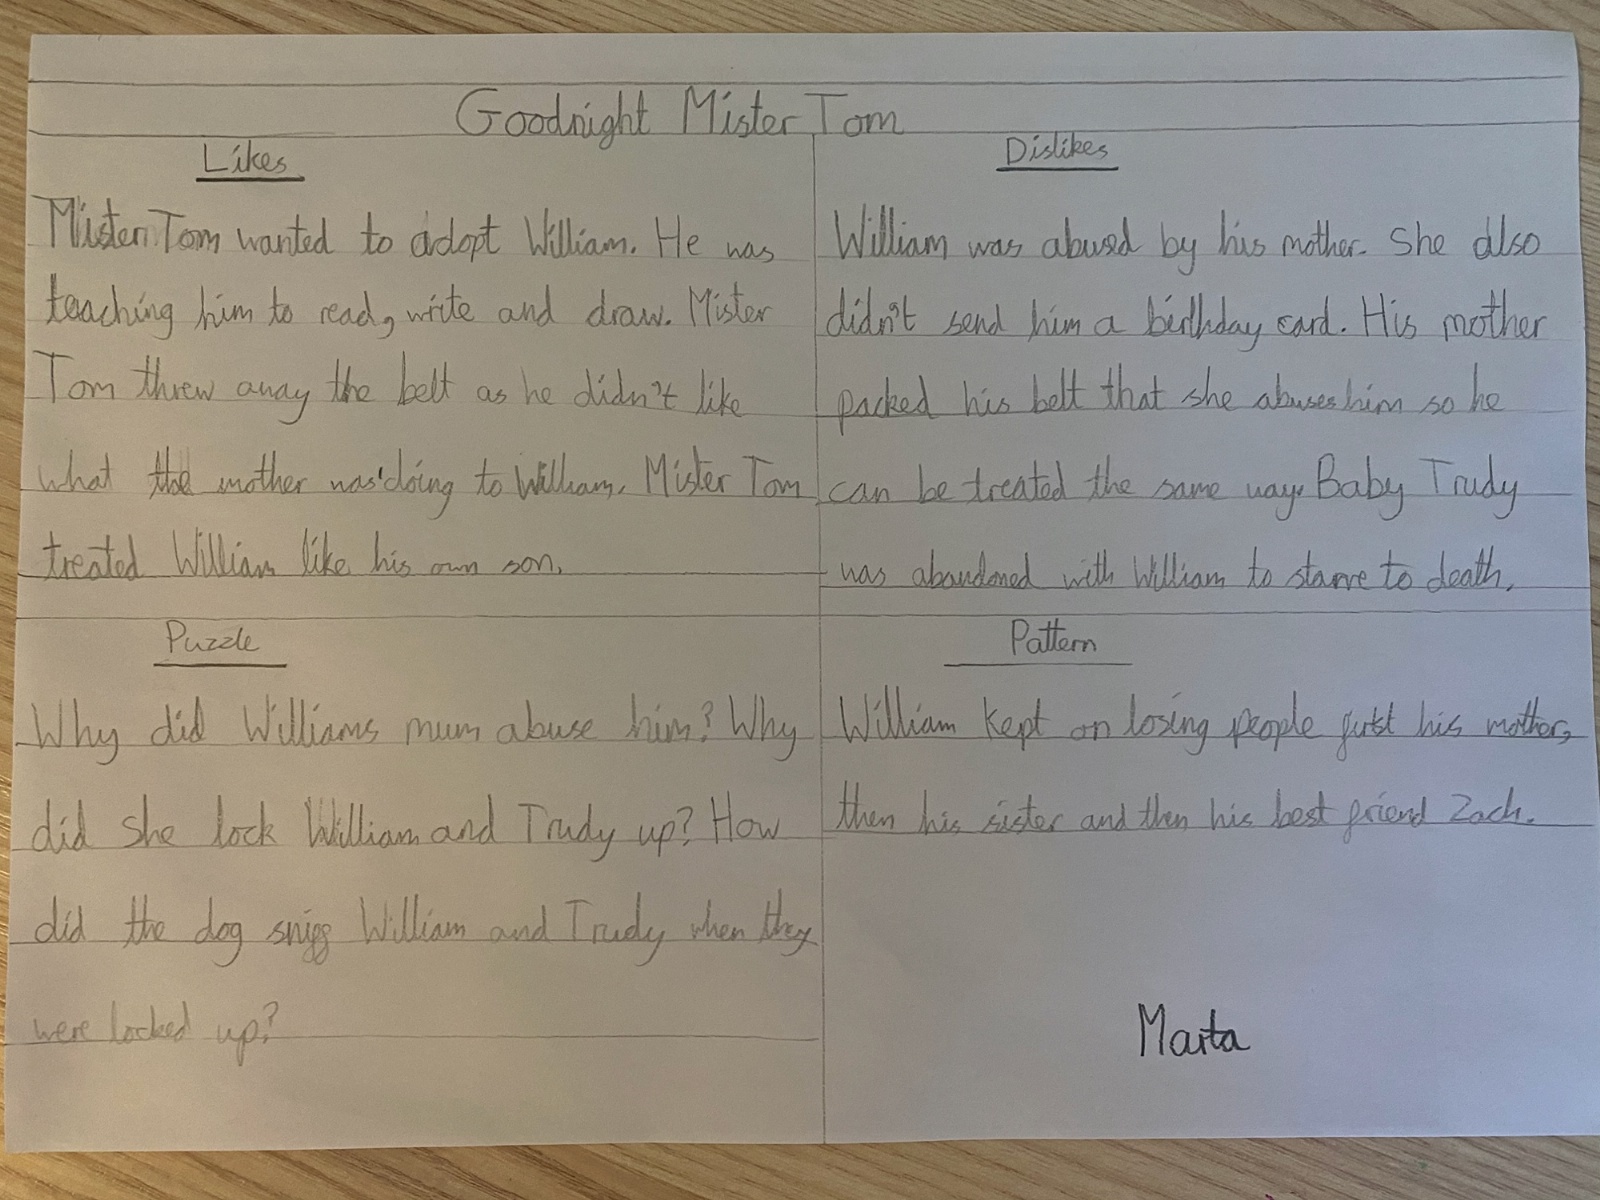 Goodnight Mister Tom
Likes
Mister Tom wanted to adopt William. He was
teaching him to read, write and draw. Mister
Tom threw away the belt as he didn't like
what the mother was doing to William. Mister Tom
treated William like his own son.
Dislikes
William was abused by his mother. She also
didn't send him a birthday card. His mother
packed his belt that she abuses him so he
can be treated the same way. Baby Trudy
was abandoned with William to starve to death.
Puzzle
Why did Williams mum abuse him? Why
did she lock William and Trudy up? How
did the dog sniff William and Trudy when they
were locked up?
Pattern
William kept on losing people first his mother,
then his sister and then his best friend Zach.
Marta